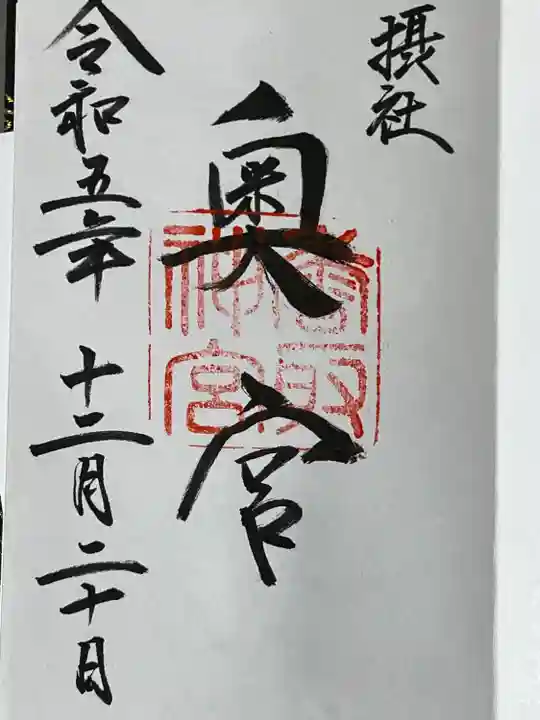 摂社
奥宮
香取神宮
令和五年十二月二十日